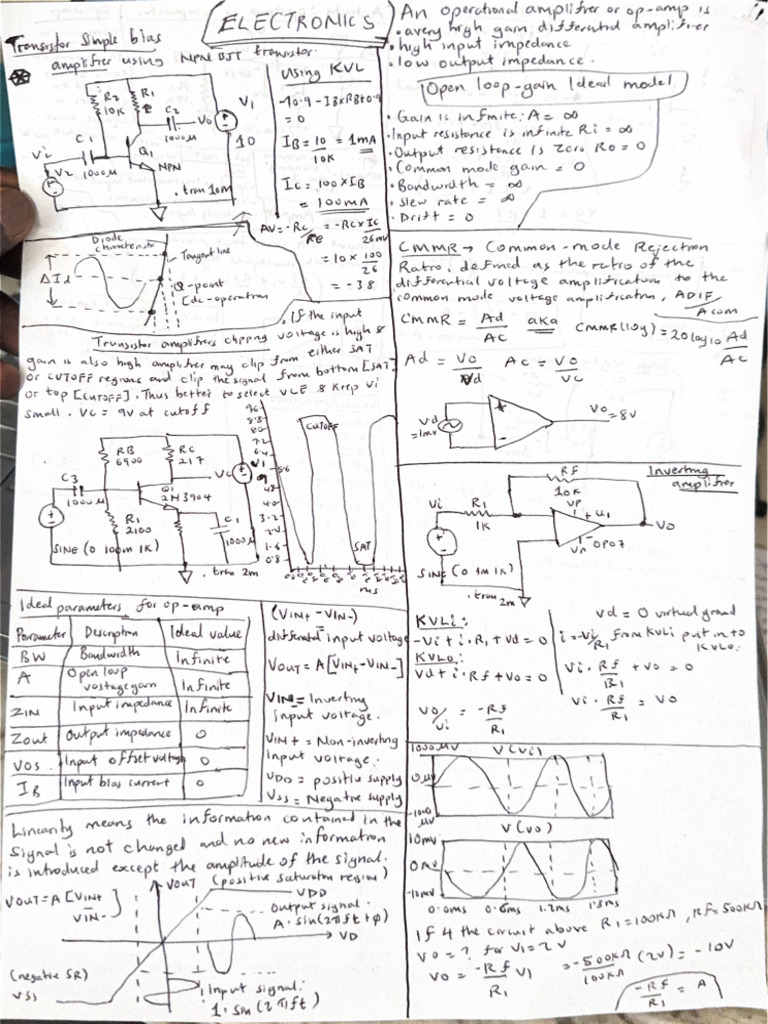 ELECTRONICS
Transistor Simple bias
amplifier using NPN BJT transistor.
R2
10K
R1
C2
1000M
Vo
V1
10
C1
1000M
Vi
V2
Q1
NPN
.tran 10m
Using KVL
-10.9 - IBxRB+0.9
= 0
IB = 10/10K = 1mA
Ic = 100 x IB
= 100mA
AV = -Rc/re = -Rc x Ic/26mV
= 10 x 100/26
= -38
Diode
characteristic
Tangent line
ΔId
Q-point
(dc-operation
. If the input
Transistor amplifiers clipping voltage is high &
gain is also high amplifier may clip from either SAT
or CUTOFF regions and clip the signal from bottom [SAT]
or top [CUTOFF]. Thus better to select VCE & keep vi
small. VC = 9V at cutoff
RB
6900
RC
217
Vc
V1
9
C3
1000M
Q1
2N3904
R1
2100
C1
1000M
SINE (0 100m 1K)
.tran 2m
9.6
8.8
8.0
7.2
6.4
5.6
4.8
4.0
3.2
2.4
1.6
0.8
CUTOFF
SAT
ms
Ideal parameters for op-amp
Parameter Description Ideal value
BW Bandwidth Infinite
A Open loop voltage gain Infinite
ZIN Input impedance Infinite
Zout Output impedance 0
VOS Input offset voltage 0
IB Input bias current 0
(VIN+ - VIN-)
differential input voltage
VOUT = A[VIN+ - VIN-]
VIN- = Inverting
input voltage.
VIN+ = Non-inverting
input voltage.
VDD = positive supply
VSS = Negative supply
Linearity means the information contained in the
signal is not changed and no new information
is introduced except the amplitude of the signal.
VOUT (positive saturation region)
VOUT = A [VIN+ - VIN-]
VDD
Output signal.
A.sin(2πft+φ)
VD
(negative SR)
VSS
Input signal:
1.sin(2πft)
An operational amplifier or op-amp is
• a very high gain differential amplifier
• high input impedance
• low output impedance.
Open loop-gain Ideal model
• Gain is infinite: A = ∞
• Input resistance is infinite Ri = ∞
• Output resistance is Zero Ro = 0
• Common mode gain = 0
• Bandwidth = ∞
• slew rate = ∞
• Drift = 0
CMMR → Common-mode Rejection
Ratio. defined as the ratio of the
differential voltage amplification to the
common mode voltage amplification, ADIF/Acom
CMMR = Ad/AC aka CMMR(log) = 20log10 Ad/Ac
Ad = Vo/Vd Ac = Vo/Vc
Vd
=1mV
+
-
Vo
=8V
Inverting
amplifier
RF
10K
R1
1K
Vi
VP
U1
Vn
OP07
VO
SINE (0 1m 1K)
.tran 2m
KVLi:
-Vi + i.R1 + Vd = 0
KVLo:
Vd + i.Rf + Vo = 0
Vo/Vi = -Rf/R1
Vd = 0 virtual ground
i = Vi/R1 from KVLi put in to
KVLo:
Vi.Rf/R1 + Vo = 0
Vi.Rf/R1 = Vo
V(Vi)
1000MV
0MV
V(vo)
10mV
0mV
-10mV
0.0ms 0.6ms 1.2ms 1.8ms
If 4 the circuit above R1=100KΩ, RF=500KΩ
Vo = ? for V1 = 2V
Vo = -Rf/R1 V1 = -500KΩ/100KΩ (2V) = -10V
-Rf/R1 = A